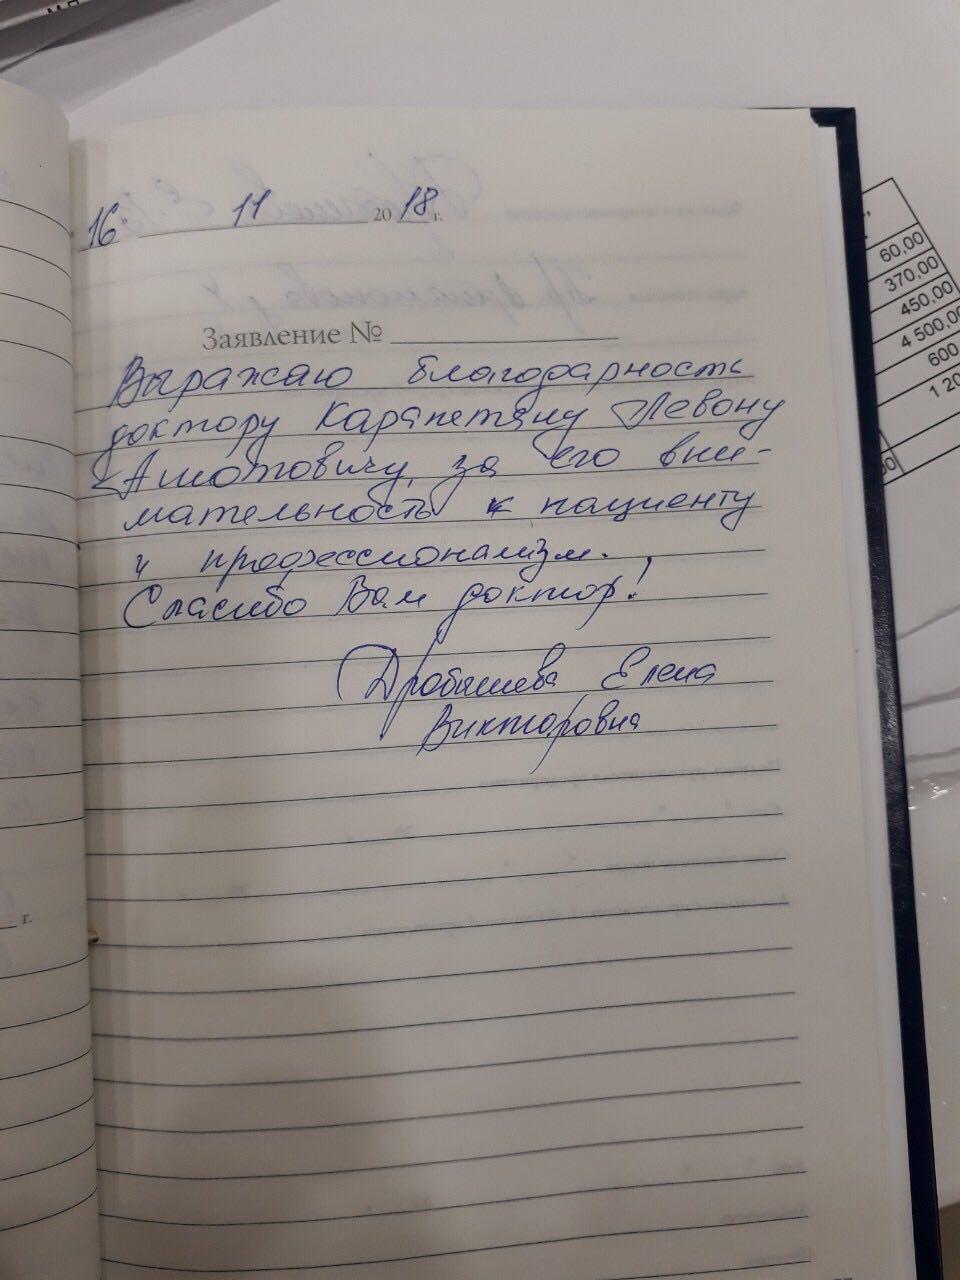 16 11 2018 г.
Заявление №
Выражаю благодарность
доктору Карапетяну Левону
Ашотовичу за его вни-
мательность к пациенту
и профессионализм.
Спасибо Вам доктор!
Дробышева Елена
Викторовна
г.
60,00
370,00
450,00
4 500,00
600
1 20